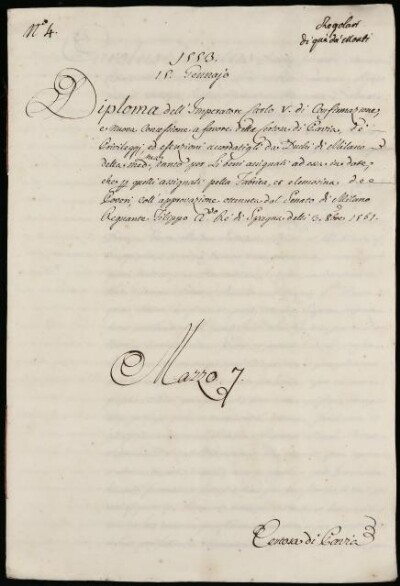 N.º 4.
Regolari
di quà da' Monti
1553.
12. Gennajo
Diploma dell'Imperatore Carlo V. di Confirmazione,
e nuova concessione a favore della Certosa di Pavia, de'
Privileggj, ed esenzioni accordatigli dai Duchi di Milano
della med.ma, tanto per li beni assignati ad essa in dote,
che p quelli assignati pella Fabrica, ed elemosina de'
Poveri, coll'approvazione ottenuta dal Senato di Milano
Regnante Filippo Re di Spagna delli 3. 1561.
Mazzo 7.
Certosa di Pavia